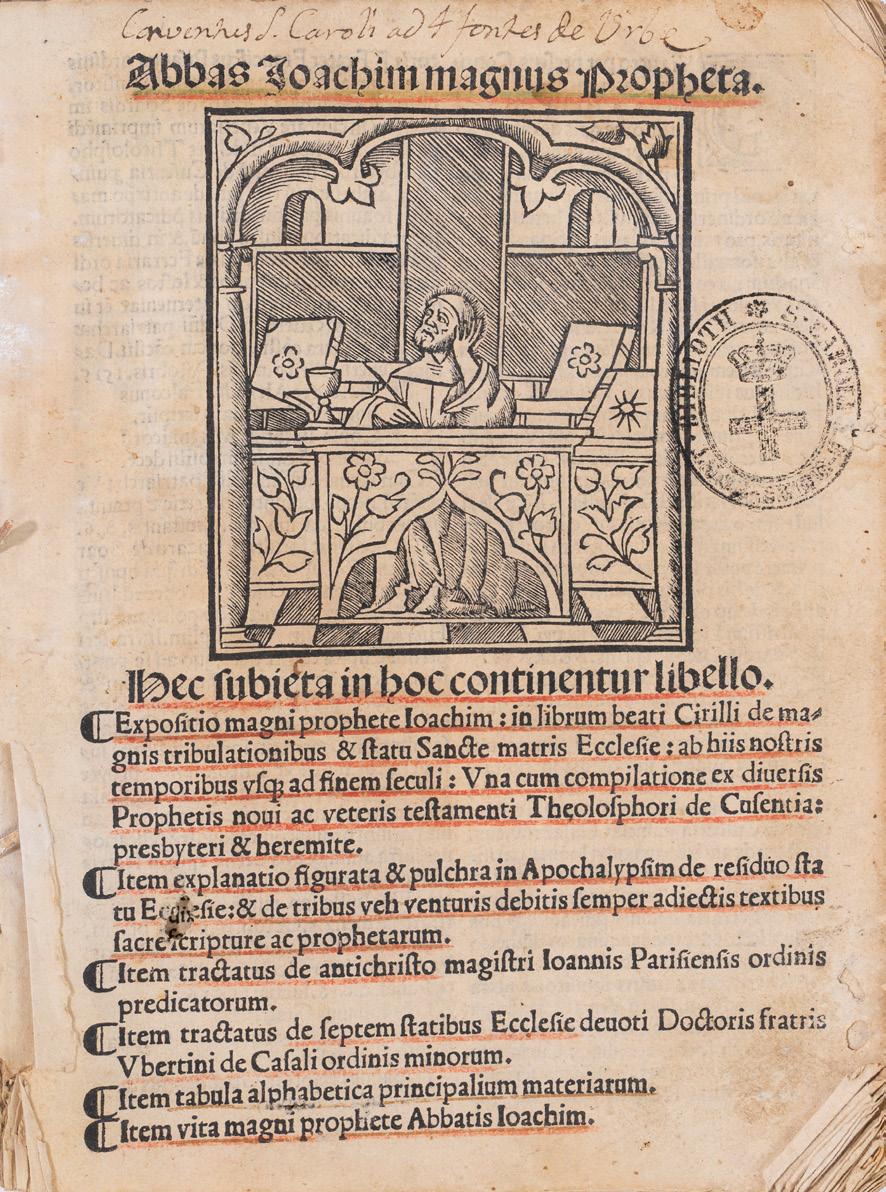 Conventus S. Caroli ad 4 fontes de Urbe
Abbas Ioachim magnus Propheta.
BIBLIOTH S. CAROLI
Hec subiecta in hoc continentur libello.
¶Expositio magni prophete Ioachim : in librum beati Cirilli de ma⸗
gnis tribulationibus & statu Sancte matris Ecclesie : ab hiis nostris
temporibus vsqꝫ ad finem seculi : Vna cum compilatione ex diuersis
Prophetis noui ac veteris testamenti Theolosphori de Cusentia:
presbyteri & heremite.
¶Item explanatio figurata & pulchra in Apochalypsim de residuo sta
tu Ecclesie:& de tribus veh venturis debitis semper adiectis textibus
sacre scripture ac prophetarum.
¶Item tractatus de antichristo magistri Ioannis Parisiensis ordinis
predicatorum.
¶Item tractatus de septem statibus Ecclesie deuoti Doctoris fratris
Vbertini de Casali ordinis minorum.
¶Item tabula alphabetica principalium materiarum.
¶Item vita magni prophete Abbatis Ioachim.